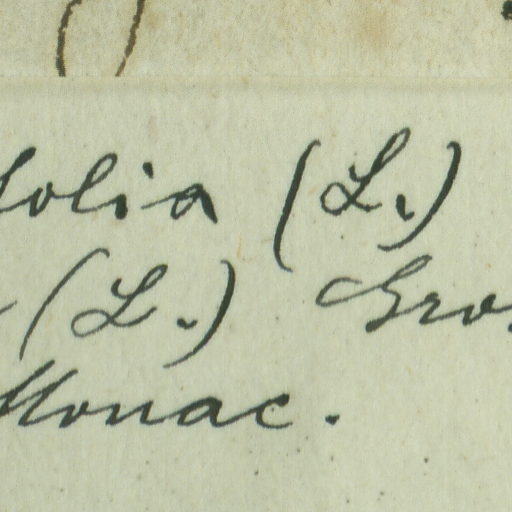 folia (L.)
(L.) Gros
Monac.